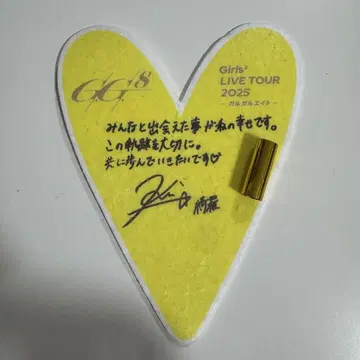 GG8
Girls²
LIVE TOUR
2025
- ガルガルエイト -
みんなと出会えた事が私の幸せです。
この軌跡を大切に。
共に歩んでいきたいです♡